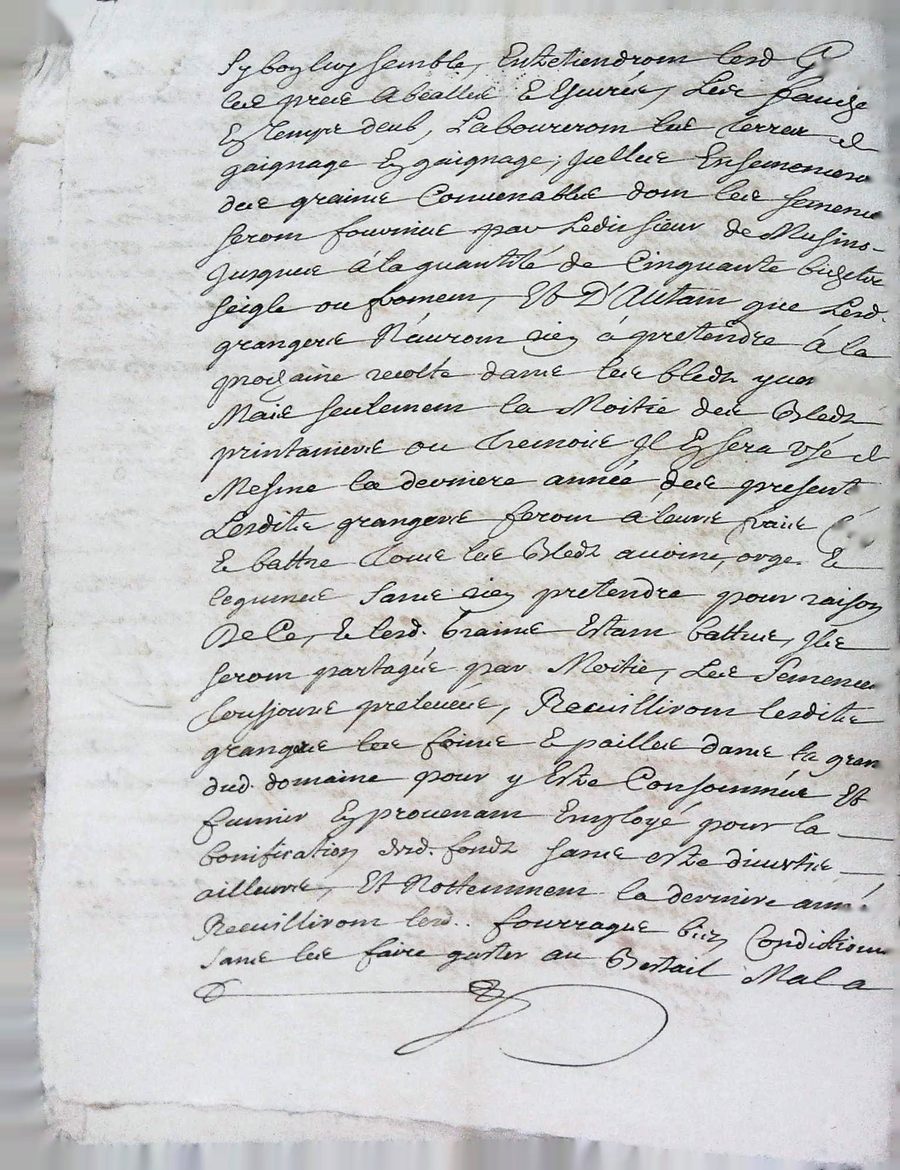 Sy boy luy semble, Entretiendrom lesd G
les pres Abeallés & Esuirés, Les fauche
En temps deub, Labourerom les terres de
gaignage En gaignage, Jcelles Ensemencero
des graines Conuenables dom les semence
serom fournies par Ledit sieur de Musino-
Jusques à la quantité de Cinquante bichetz
seigle ou fromem, Et D'Autam que Lesd.
grangers N'aurom rien à pretendre à la
prochaine recolte dans les bledz yuer
Mais seulemem la Moitié des Bledz
printaniers ou tremois Jl En sera vsé de
Mesme la derniere année des present
Lesdits grangers ferom à leurs frais
& battre tous les Bledz auoine, orge &
legumes sans rien pretendre pour raison
De Ce, & lesd. Graines Estam battues, Jls
serom partagés par Moitie, Les Semence
tousjours preleuées, Recuillirom lesdits
granges les foins & pailles dans la gran
dud. domaine pour y Estre Consommés Et
fumier En prouenam Employé pour la
bonification desd. fondz sans estre diuertis
ailleurs, Et Nottemmem la derniere anné
Recuillirom lesd.. fourrages bien Conditionn
sans les faire gaster au Bestail Mal a